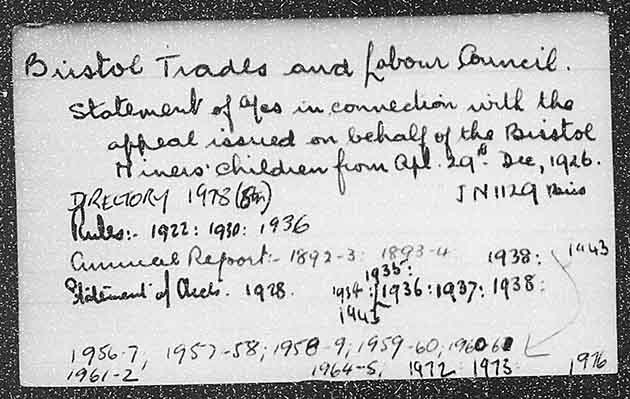 Bristol Trades and Labour Council.
Statement of a/cs in connection with the
appeal issued on behalf of the Bristol
Miners' Children from Apl. 29th Dec, 1926.
DIRECTORY 1978 JN1129
Rules:- 1922: 1930: 1936
Annual Report:- 1892-3: 1893-4 1938: 1943
1935:
Statement of Accts. 1928. 1934: 1936: 1937: 1938:
1945
1956-7, 1957-58; 1958-9, 1959-60; 1960-61
1961-2 1964-5, 1972 1973 1976